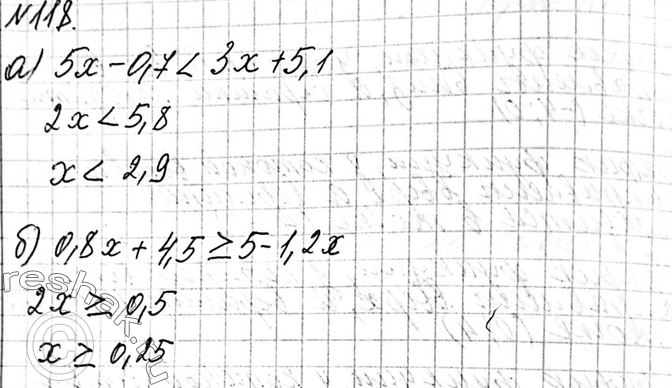 №118.
а) 5x - 0,7 < 3x + 5,1
2x < 5,8
x < 2,9
б) 0,8x + 4,5 ≥ 5 - 1,2x
2x ≥ 0,5
x ≥ 0,25
reshak.ru